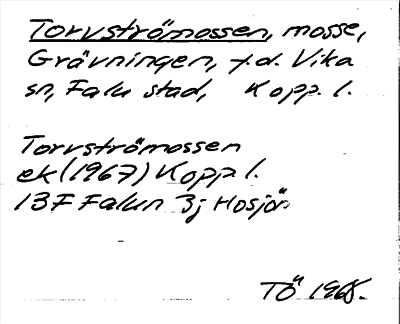 Torvströmossen, mosse,
Grävningen, f.d. Vika
sn, Falu stad, Kopp. l.
Torvströmossen
ek (1967) Kopp l.
13F Falun 3j Hosjön
TÖ 1968.